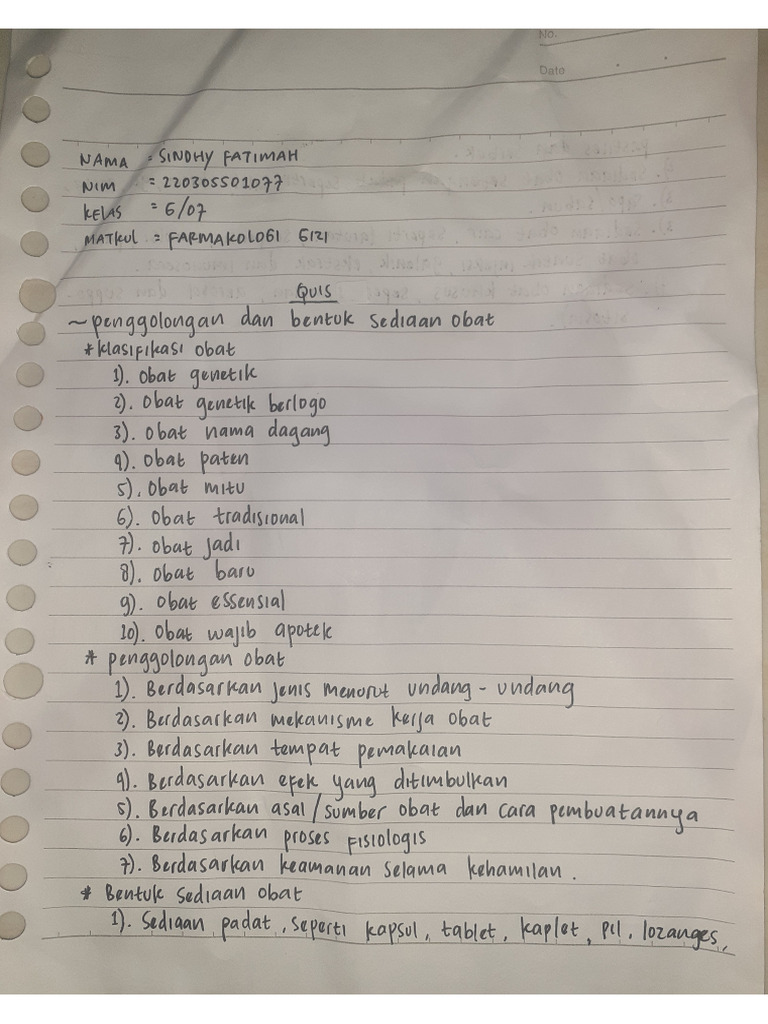 No.
Date
NAMA : SINDHY FATIMAH
NIM : 220305501077
KELAS : G/07
MATKUL : FARMAKOLOGI GIZI
QUIS
~ penggolongan dan bentuk sediaan obat
* klasifikasi obat
1). obat genetik
2). obat genetik berlogo
3). obat nama dagang
4). obat paten
5). obat mitu
6). obat tradisional
7). obat jadi
8). obat baru
9). obat essensial
10). obat wajib apotek
* penggolongan obat
1). Berdasarkan jenis menurut undang - undang
2). Berdasarkan mekanisme kerja obat
3). Berdasarkan tempat pemakaian
4). Berdasarkan efek yang ditimbulkan
5). Berdasarkan asal / sumber obat dan cara pembuatannya
6). Berdasarkan proses fisiologis
7). Berdasarkan keamanan selama kehamilan.
* Bentuk sediaan obat
1). Sediaan padat, seperti kapsul, tablet, kaplet, pil, lozanges,